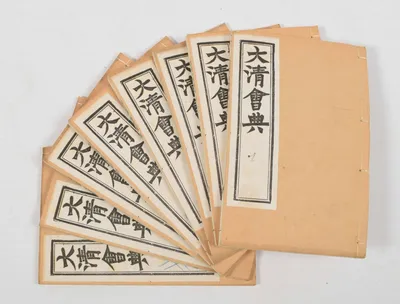 大清會典
大清會典
大清會典
大清會典
大清會典
大清會典
大清會典
大清會典